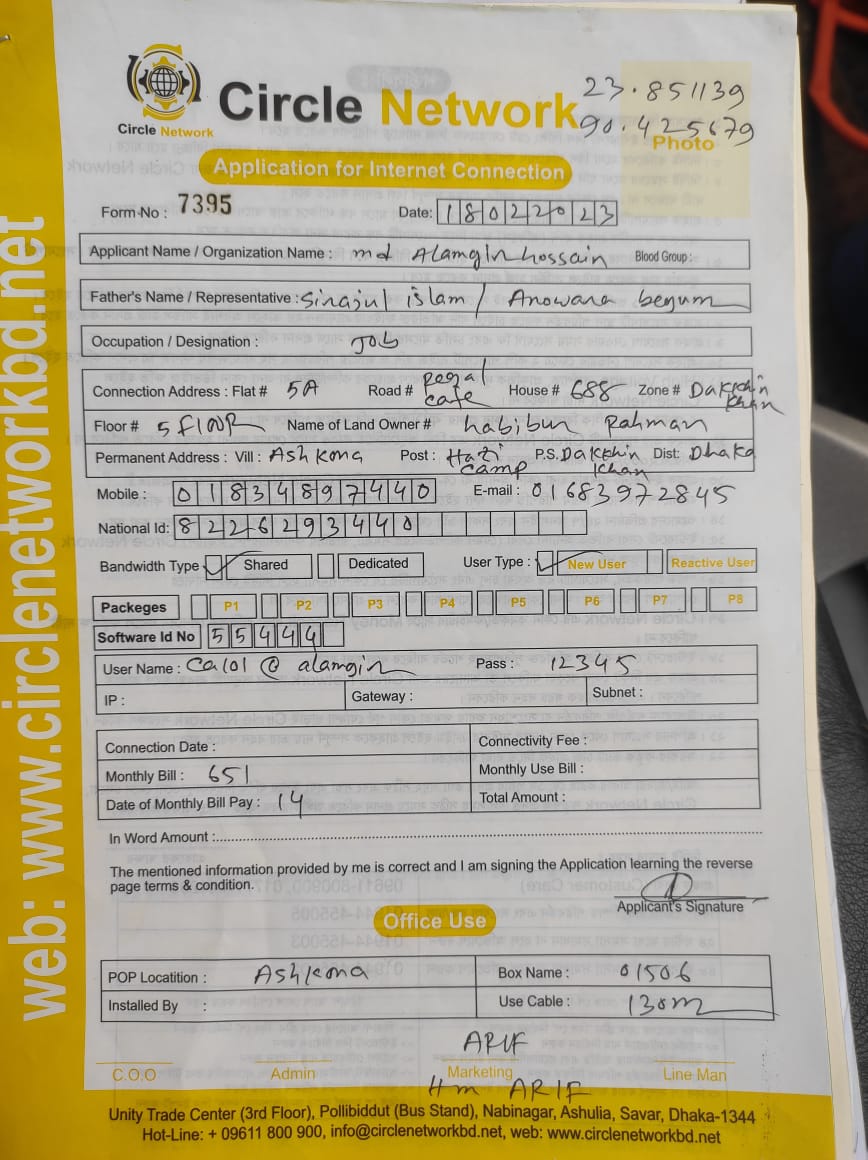 web: www.circlenetworkbd.net
Circle Network
Circle Network
23.851139
90.425679
Photo
Application for Internet Connection
Form No : 7395
Date: 18022023
Applicant Name / Organization Name : md Alamgin hossain Blood Group :
Father's Name / Representative : Sinajul islam / Anowana begum
Occupation / Designation : JOb
Connection Address : Flat # 5A Road # Regal cafe House # 688 Zone # Dakkhin Khan
Floor # 5 flOOR Name of Land Owner # habibun Rahman
Permanent Address : Vill : Ashkona Post : Hazi camp P.S. Dakkhin Khan Dist: Dhaka
Mobile : 01834897440 E-mail : 01683972845
National Id: 8226293440
Bandwidth Type Shared Dedicated User Type : New User Reactive User
Packeges P1 P2 P3 P4 P5 P6 P7 P8
Software Id No 55444
User Name : Ca101 @ alamgin Pass : 12345
IP : Gateway : Subnet :
Connection Date : Connectivity Fee :
Monthly Bill : 651 Monthly Use Bill :
Date of Monthly Bill Pay : 14 Total Amount :
In Word Amount :
The mentioned information provided by me is correct and I am signing the Application learning the reverse
page terms & condition.
Applicant's Signature
Office Use
POP Locatition : Ashkona Box Name : 01506
Installed By : Use Cable : 130m
ARIF
C.O.O Admin Marketing Line Man
Hm ARIF
Unity Trade Center (3rd Floor), Pollibiddut (Bus Stand), Nabinagar, Ashulia, Savar, Dhaka-1344
Hot-Line: + 09611 800 900, info@circlenetworkbd.net, web: www.circlenetworkbd.net